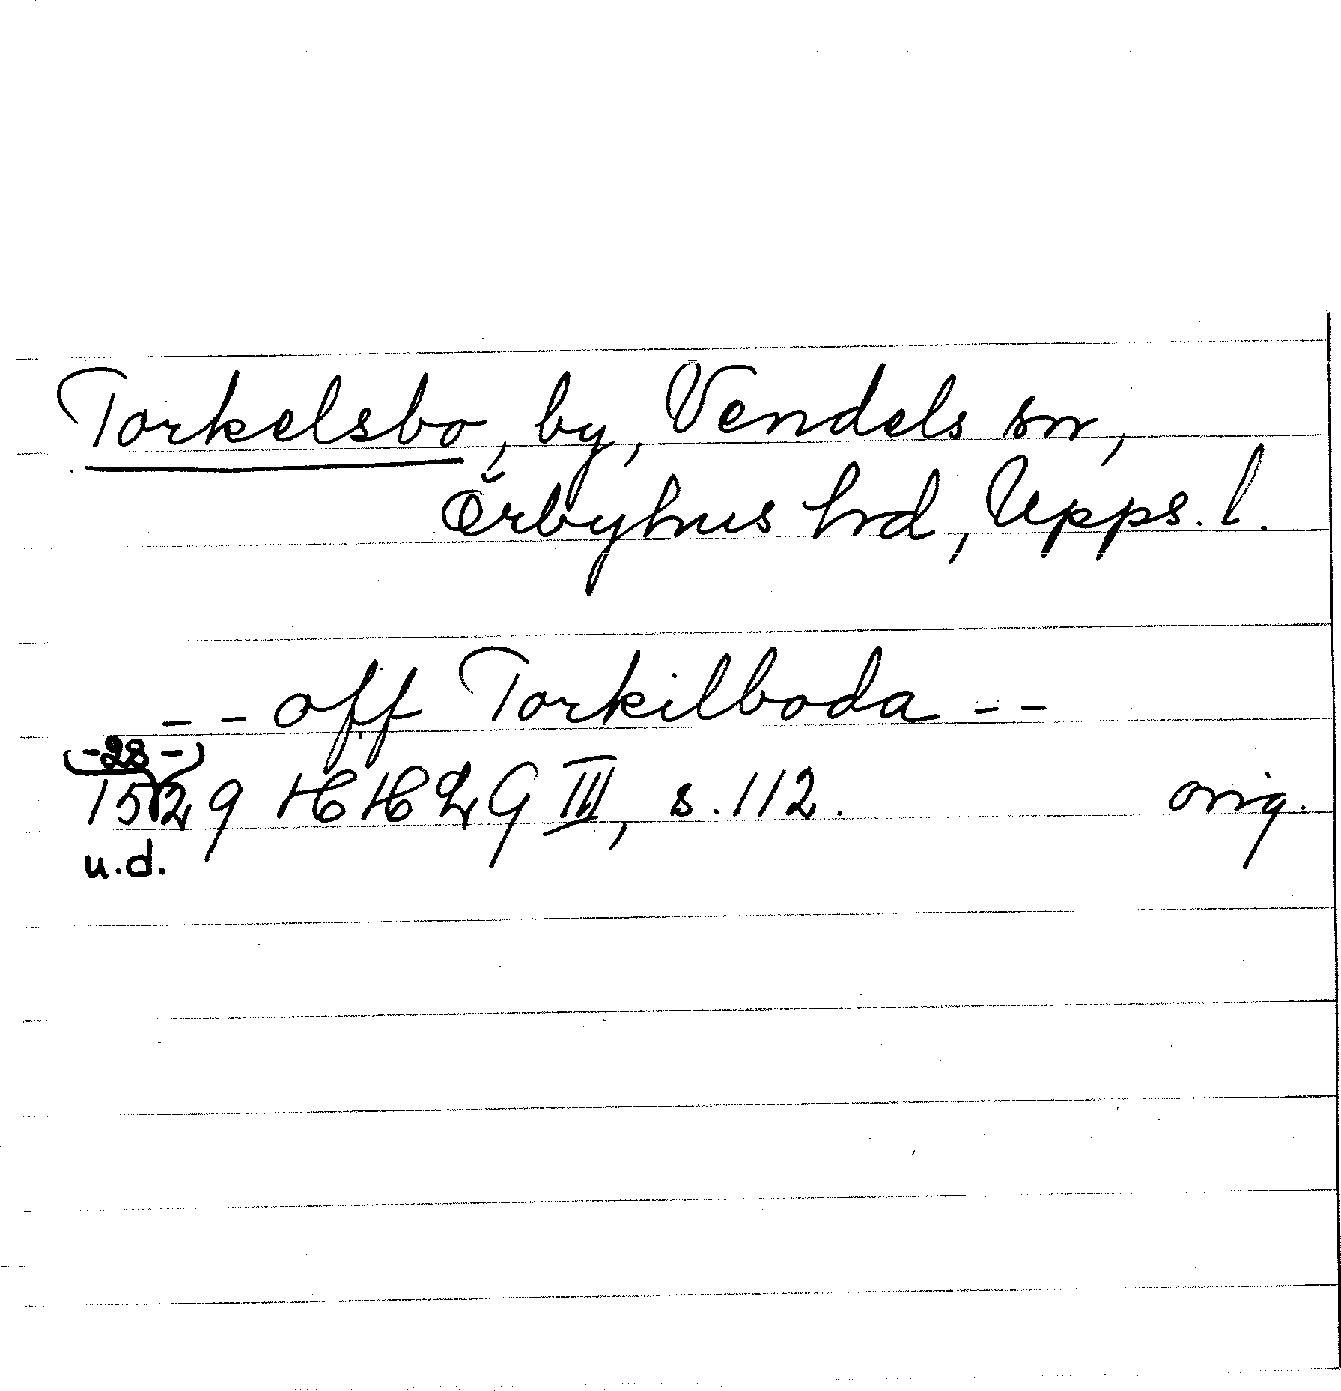 Torkelsbo, by, Vendels sn,
Örbyhus hrd, Upps. l.
-- off Torkilboda --
-28-
1529 HH 2 G III, s. 112. orig.
u.d.